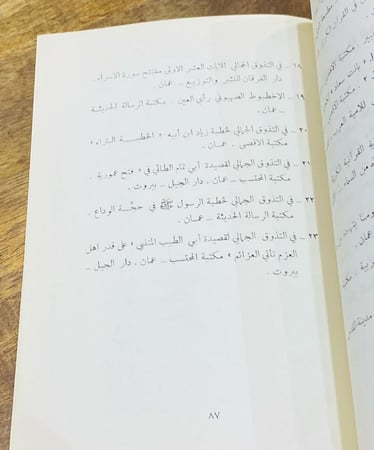 ١٨ ـ في التذوق الجمالي للآيات العشر الاولى مفتتح سورة الاسراء
دار الفرقان للنشر والتوزيع ـ عمان .
١٩ ـ الاخطبوط الصهيوني رأي العين . مكتبة الرسالة الحديثة
ـ عمان .
٢٠ ـ في التذوق الجمالي لخطبة زياد ابن أبيه « الخطبة البتراء »
مكتبة الاقصى . عمان .
٢١ ـ في التذوق الجمالي لقصيدة أبي تمام الطائي في « فتح عمورية .
مكتبة المحتسب ـ عمان . دار الجيل ـ بيروت .
٢٢ ـ في التذوق الجمالي لخطبة الرسول ﷺ في حجة الوداع .
مكتبة الرسالة الحديثة ـ عمان .
٢٣ ـ في التذوق الجمالي لقصيدة أبي الطيب المتنبي « على قدر اهل
العزم تأتي العزائم » مكتبة المحتسب ـ عمان . دار الجيل ـ
بيروت .
٨٧